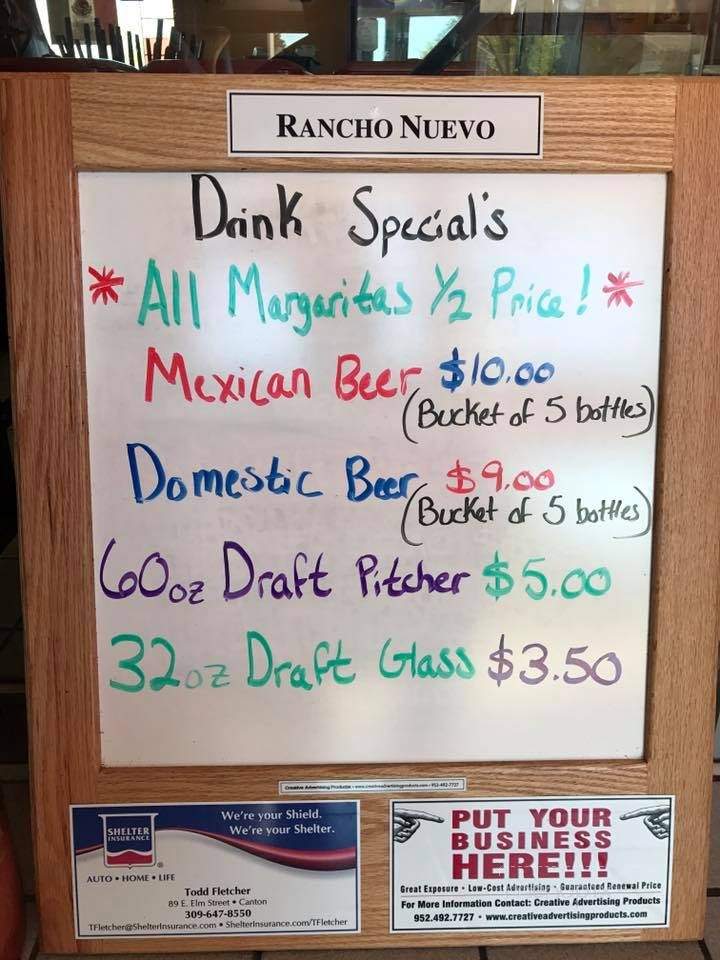 RANCHO NUEVO
Drink Special's
* All Margaritas 1/2 Price! *
Mexican Beer $10.00
(Bucket of 5 bottles)
Domestic Beer $9.00
(Bucket of 5 bottles)
60oz Draft Pitcher $5.00
32oz Draft Glass $3.50
Creative Advertising Products • www.creativeadvertisingproducts.com • 952-492-7727
SHELTER
INSURANCE
®
We're your Shield.
We're your Shelter.
AUTO • HOME • LIFE
Todd Fletcher
89 E. Elm Street • Canton
309-647-8550
TFletcher@ShelterInsurance.com • ShelterInsurance.com/TFletcher
PUT YOUR
BUSINESS
HERE!!!
Great Exposure • Low-Cost Advertising • Guaranteed Renewal Price
For More Information Contact: Creative Advertising Products
952.492.7727 • www.creativeadvertisingproducts.com